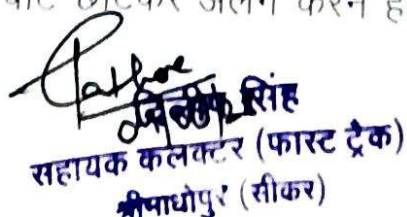 छांटकर अलग करने ह
सिंह
सहायक कलक्टर (फास्ट ट्रैक)
श्रीमाधोपुर (सीकर)